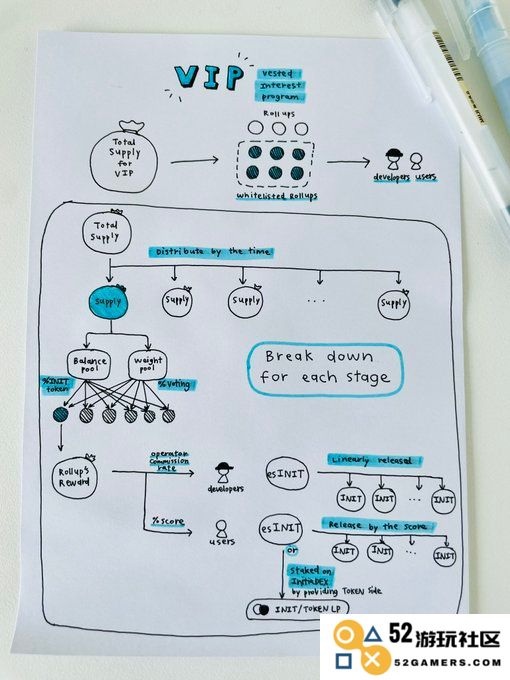 VIP
vested
interest
program
Rollups
Total
Supply
for
VIP
developers users
whitelisted Rollups
Total
Supply
Distribute by the time
Supply
Supply
Supply
...
Supply
Break down
for each stage
Balance
pool
Weight
pool
%INIT
token
%Voting
Rollup's
Reward
operator
commission
rate
developers
esINIT
Linearly released
INIT
INIT
...
INIT
%score
users
esINIT
Release by the score
INIT
INIT
...
INIT
or
Staked on
InitiaDEX
by providing TOKEN side
INIT/TOKEN LP
52游玩社区
52GAMERS.COM